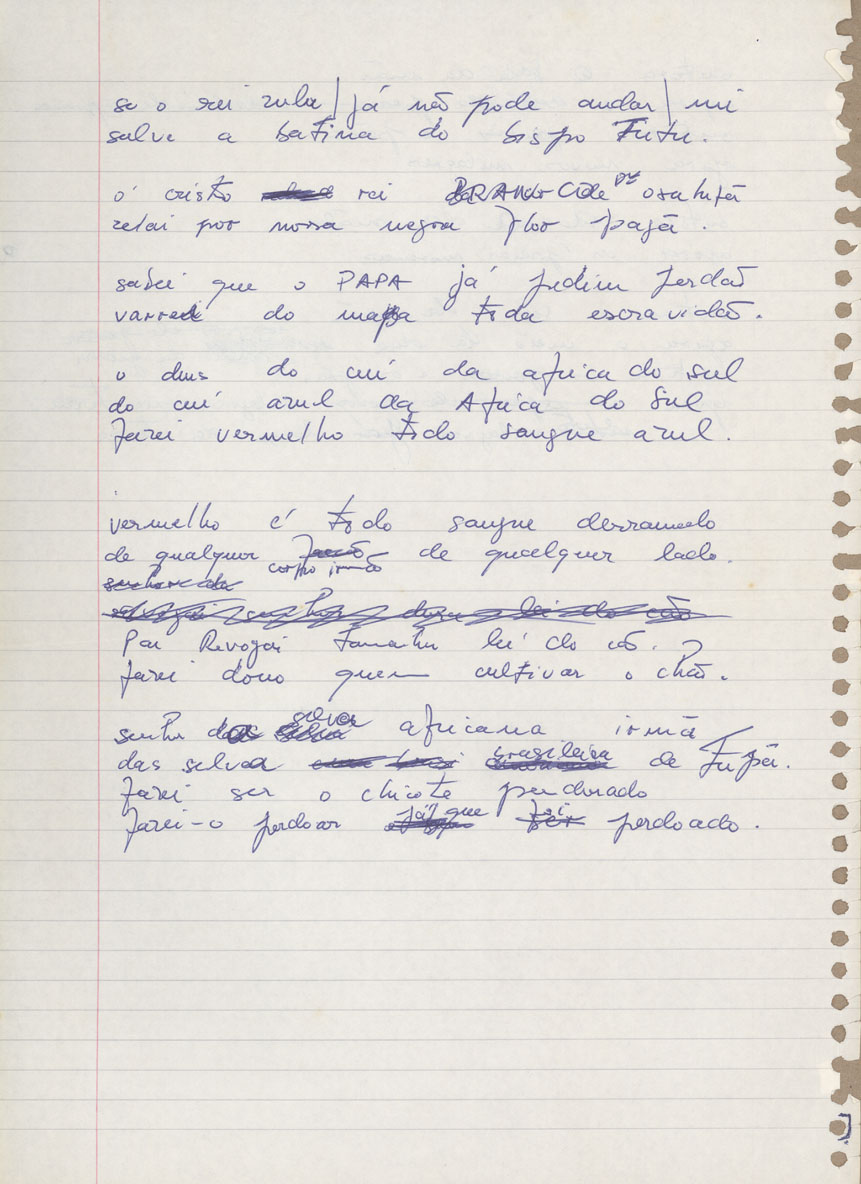 se o rei zulu / já não pode andar / mi
salve a batina do bispo Tutu.
ó cristo rei BRANCO de oxalufã
zelai por nossa negra flor pagã.
sabei que o PAPA já pediu perdão
varrei do mapa toda escravidão.
o deus do céu da africa do sul
do céu azul da Africa do Sul
farei vermelho todo sangue azul.
vermelho é todo sangue derramado
de qualquer corpo irmão de qualquer lado.
senhora da
Pai Revogai tamanha lei do cão.
farei dono quem cultivar o chão.
senhor da selva africana irmã
das selva brasileira de Tupã.
farei ser o chicote pendurado
farei-o perdoar já que foi perdoado.